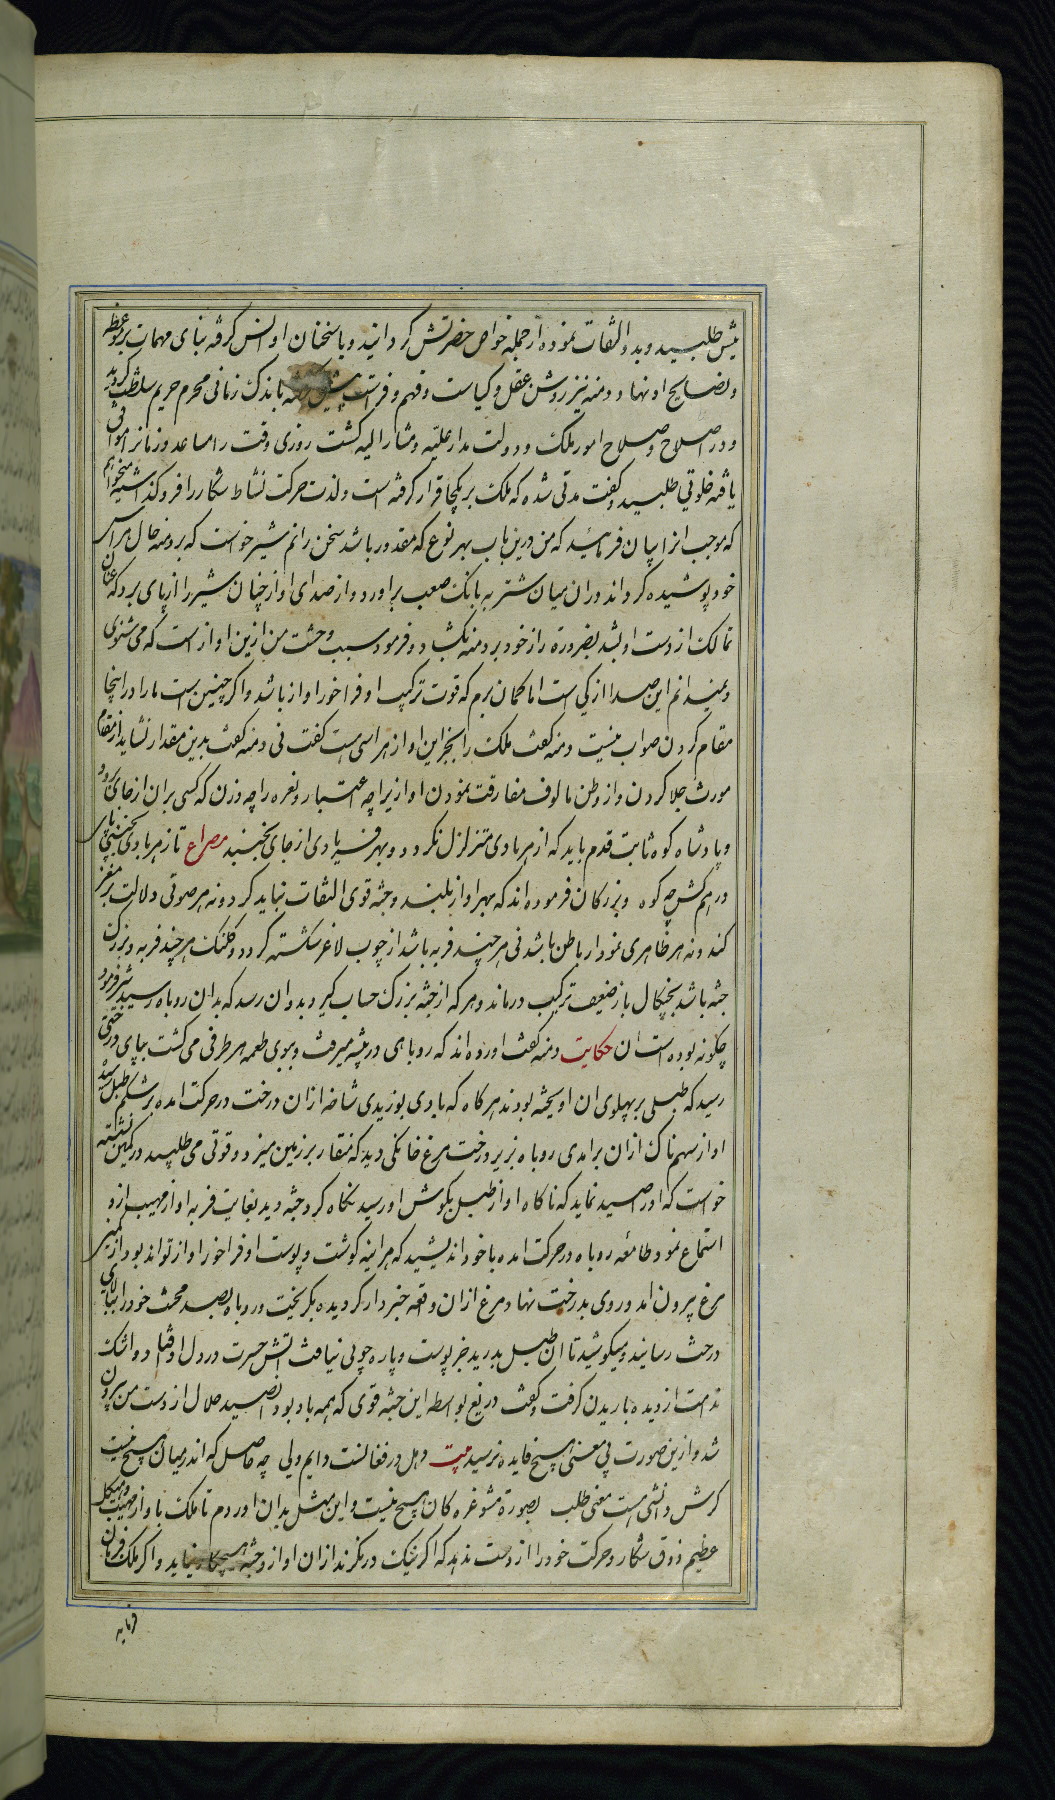 پیش طلبید و بدو التفات نموده از جمله خواص حضرتش گردانید و با سخنان او انس گرفته بنای مهمات بر موعظه
و نصایح او نهاد و دمنه نیز روش عقل و کیاست و فهم و فراست پیش گرفته باندک زمانی محرم حریم سلطنت گردید
و در اصلاح و صلاح امور ملک و دولت مدار علیه و مشار الیه گشت روزی وقت را مساعد و زمانرا موافق
یافته خلوتی طلبید و گفت مدتی شده که ملک بر یکجا قرار گرفته است و لذت حرکت نشاط شکار را فرو گذاشته میخواهم
که موجب انرا بیان فرمائید که من درین باب بهر نوع که مقدور باشد سخن رانم شیر خواست که بر دمنه حال هراس
خود پوشیده گرداند دران میان شتربه بانک صعب براورد و از صدای او ازچنان شیر را از پای برد که عنان
تمالک از دست او بشد بضرورة راز خود بر دمنه بگشاد و فرمود سبب وحشت من ازین اواز است که می شنوی
و نمیدانم این صدا از کیست اما گمان برم که قوت ترکیب او فراخور اواز باشد و اگر چنین است ما را در اینجا
مقام کردن صواب نیست دمنه گفت ملک را بجز این اواز هراسی هست گفت نی دمنه گفت بدین مقدار نشاید از مقام
موروث جلا کردن و از وطن مالوف مفارقت نمودن اواز را چه اعتبار و نعره را چه وزن که کسی بران از جای رود
و پادشاه کوه ثابت قدم باید که از هر بادی متزلزل نگردد و بهر فریادی از جای نجنبد مصراع تا ز هر بادی نجنبی پای
در دامن کش چو کوه و بزرگان فرموده اند که بهر اواز بلند و جثه قوی التفات نباید کرد و نه هر صوتی دلالت بر مغز
کند و نه هر ظاهری نمودار باطن باشد نی هر چند فربه باشد از چوب لاغر شکسته گردد و کلنک هر چند فربه و بزرگ
جثه باشد بچنگال باز ضعیف ترکیب درماند و هر که از جثه بزرگ حساب گیرد بدو ان رسد که بدان روباه رسید شیر فرمود
چگونه بوده است ان حکایت دمنه گفت اورده اند که روباهی در بیشه میرفت و ببوی طعمه هر طرفی می گشت بپای درختی
رسید که طبلی بر پهلوی ان اویخته بودند هر گاه که بادی بوزیدی شاخه ازان درخت در حرکت امده بر شکم طبل رسیدی
اواز سهمناک ازان برامدی روباه بزیر درخت مرغ خانگی دید که منقار بر زمین میزد و قوتی می طلبید در کمین نشسته
خواست که او را صید نماید که ناگاه اواز طبل بگوش او رسید نگاه کرد جثه دید بغایت فربه اواز مهیب ازو
استماع نمود طامعه روباه در حرکت امده با خود اندیشید که هراینه گوشت و پوست او فراخور اواز تواند بود از کمین
مرغ بیرون امد و روی بدرخت نهاد مرغ ازان واقعه خبردار گردیده بگریخت و روباه بصد محنت خود را ببالای
درخت رسانید و میکوشید تا ان طبل بدرید جز پوست و پاره چوبی نیافت اتش حسرت در دل او فتاد و اشک
ندامت از دیده باریدن گرفت و گفت دریغ بواسطه این جثه قوی که همه باد بود ان صید حلال از دست من بیرون
شد و ازین صورت بی معنی هیچ فایده نرسید بیت دهل در فغانست دایم ولی چه حاصل که اندر میان هیچ نیست
گرش دانشی هست معنی طلب بصورة مشو غره کان هیچ نیست و این مثل بدان اوردم تا ملک باواز مهیب و هیکل
عظیم ذوق شکار و حرکت خود را از دست ندهد که اگر نیک درنگرند ازان اواز و جثه هیچکار نیاید و اگر ملک فرمان
فرماید